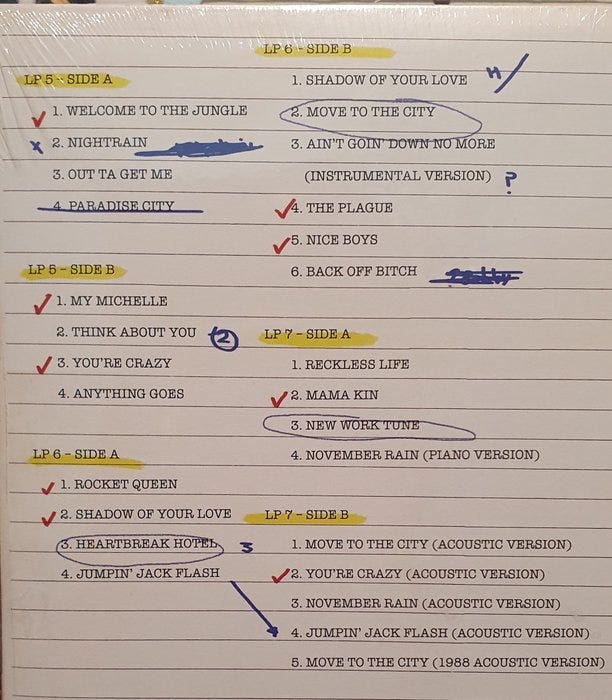 LP 5 - SIDE A
1. WELCOME TO THE JUNGLE
x 2. NIGHTRAIN
3. OUT TA GET ME
4. PARADISE CITY
LP 5 - SIDE B
1. MY MICHELLE
2. THINK ABOUT YOU 2
3. YOU'RE CRAZY
4. ANYTHING GOES
LP 6 - SIDE A
1. ROCKET QUEEN
2. SHADOW OF YOUR LOVE
3. HEARTBREAK HOTEL 3
4. JUMPIN' JACK FLASH
LP 6 - SIDE B
1. SHADOW OF YOUR LOVE
2. MOVE TO THE CITY
3. AIN'T GOIN' DOWN NO MORE
(INSTRUMENTAL VERSION) ?
4. THE PLAGUE
5. NICE BOYS
6. BACK OFF BITCH
LP 7 - SIDE A
1. RECKLESS LIFE
2. MAMA KIN
3. NEW WORK TUNE
4. NOVEMBER RAIN (PIANO VERSION)
LP 7 - SIDE B
1. MOVE TO THE CITY (ACOUSTIC VERSION)
2. YOU'RE CRAZY (ACOUSTIC VERSION)
3. NOVEMBER RAIN (ACOUSTIC VERSION)
4. JUMPIN' JACK FLASH (ACOUSTIC VERSION)
5. MOVE TO THE CITY (1988 ACOUSTIC VERSION)